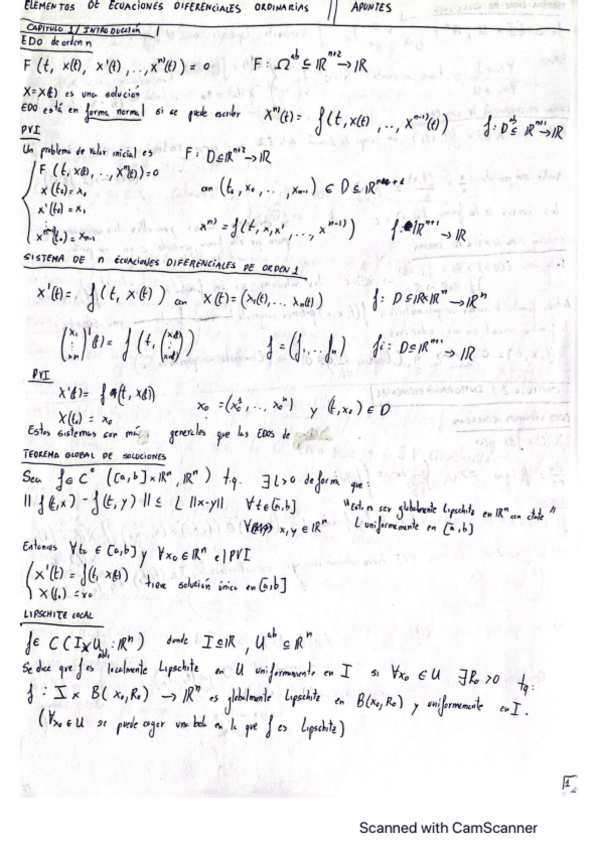 ELEMENTOS DE ECUACIONES DIFERENCIALES ORDINARIAS || APUNTES
CAPITULO 1 / INTRODUCCIÓN
EDO de orden n
F(t, x(t), x'(t), .., x^{n)}(t)) = 0   F: Ω^{ab} ⊆ ℝ^{n+2} → ℝ
x = x(t) es una solución
EDO está en forma normal si se puede escribir   x^{n)}(t) = f(t, x(t), .., x^{n-1)}(t))   f: D^{ab} ⊆ ℝ^{n+1} → ℝ
PVI
Un problema de valor inicial es   F: D ⊆ ℝ^{n+2} → ℝ
F(t, x(t), .., x^{n)}(t)) = 0
x(t₀) = x₀   con (t₀, x₀, .., x_{n-1}) ∈ D ⊆ ℝ
x'(t₀) = x₁
x^{n-1)}(t₀) = x_{n-1}   x^{n)} = f(t, x, x', .., x^{n-1)})   f: ℝ^{n+1} → ℝ
SISTEMA DE n ECUACIONES DIFERENCIALES DE ORDEN 1
X'(t) = f(t, X(t)) con X(t) = (x₁(t), .. x_n(t))   f: D ⊆ ℝxℝ^n → ℝ^n
(x₁ ⋮ x_n)'(t) = f(t, (x₁(t) ⋮ x_n(t)))   f = (f₁ .. f_n)   f_i: D ⊆ ℝ^{n+1} → ℝ
PVI
X'(t) = f(t, x(t))
X(t₀) = x₀   x₀ = (x₀¹, .., x₀^n) y (t, x₀) ∈ D
Estos sistemas son más generales que las EDOS de
TEOREMA GLOBAL DE SOLUCIONES
Sea f ∈ C⁰([a,b] x ℝ^n, ℝ^n) t.q. ∃ L > 0 de forma que:
|| f(t,x) - f(t,y) || ≤ L ||x-y||   ∀t ∈ [a,b]   "Esto es ser globalmente Lipschitz en ℝ^n con cte
∀ x,y ∈ ℝ^n   L uniformemente en [a,b]"
Entonces ∀t₀ ∈ [a,b] y ∀x₀ ∈ ℝ^n el PVI
X'(t) = f(t, x(t))   tiene solución única en [a,b]
X(t₀) = x₀
LIPSCHITZ LOCAL
f ∈ C(I x U; ℝ^n) donde I ⊆ ℝ, U^{ab} ⊆ ℝ^n
Se dice que f es localmente Lipschitz en U uniformemente en I si ∀x₀ ∈ U ∃ R₀ > 0 tq:
f: I x B(x₀, R₀) → ℝ^n es globalmente Lipschitz en B(x₀, R₀) y uniformemente en I.
(∀x₀ ∈ U se puede coger una bola en la que f es Lipschitz)
1
Scanned with CamScanner